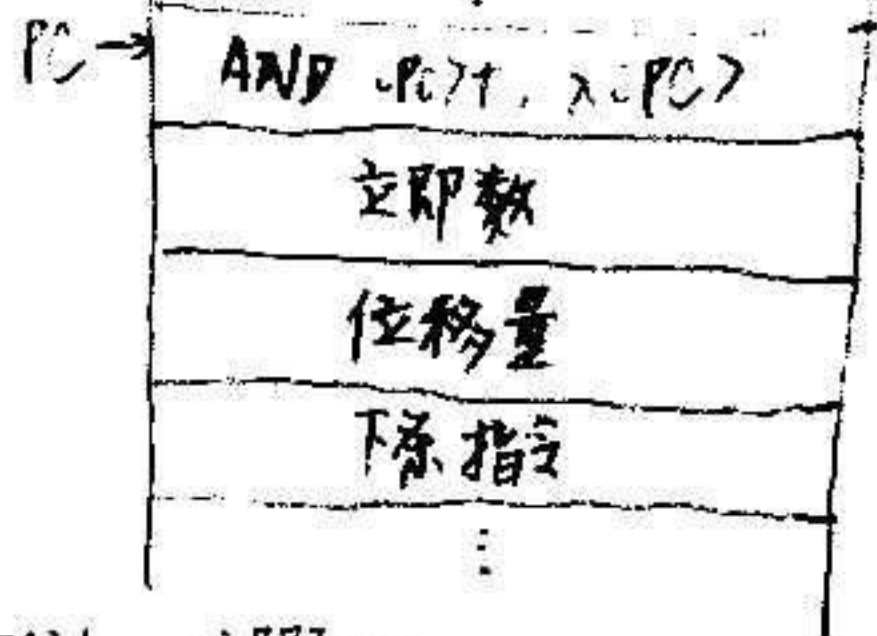 PC→
AND (PC)+, X(PC)
立即数
位移量
下条指令
⋮